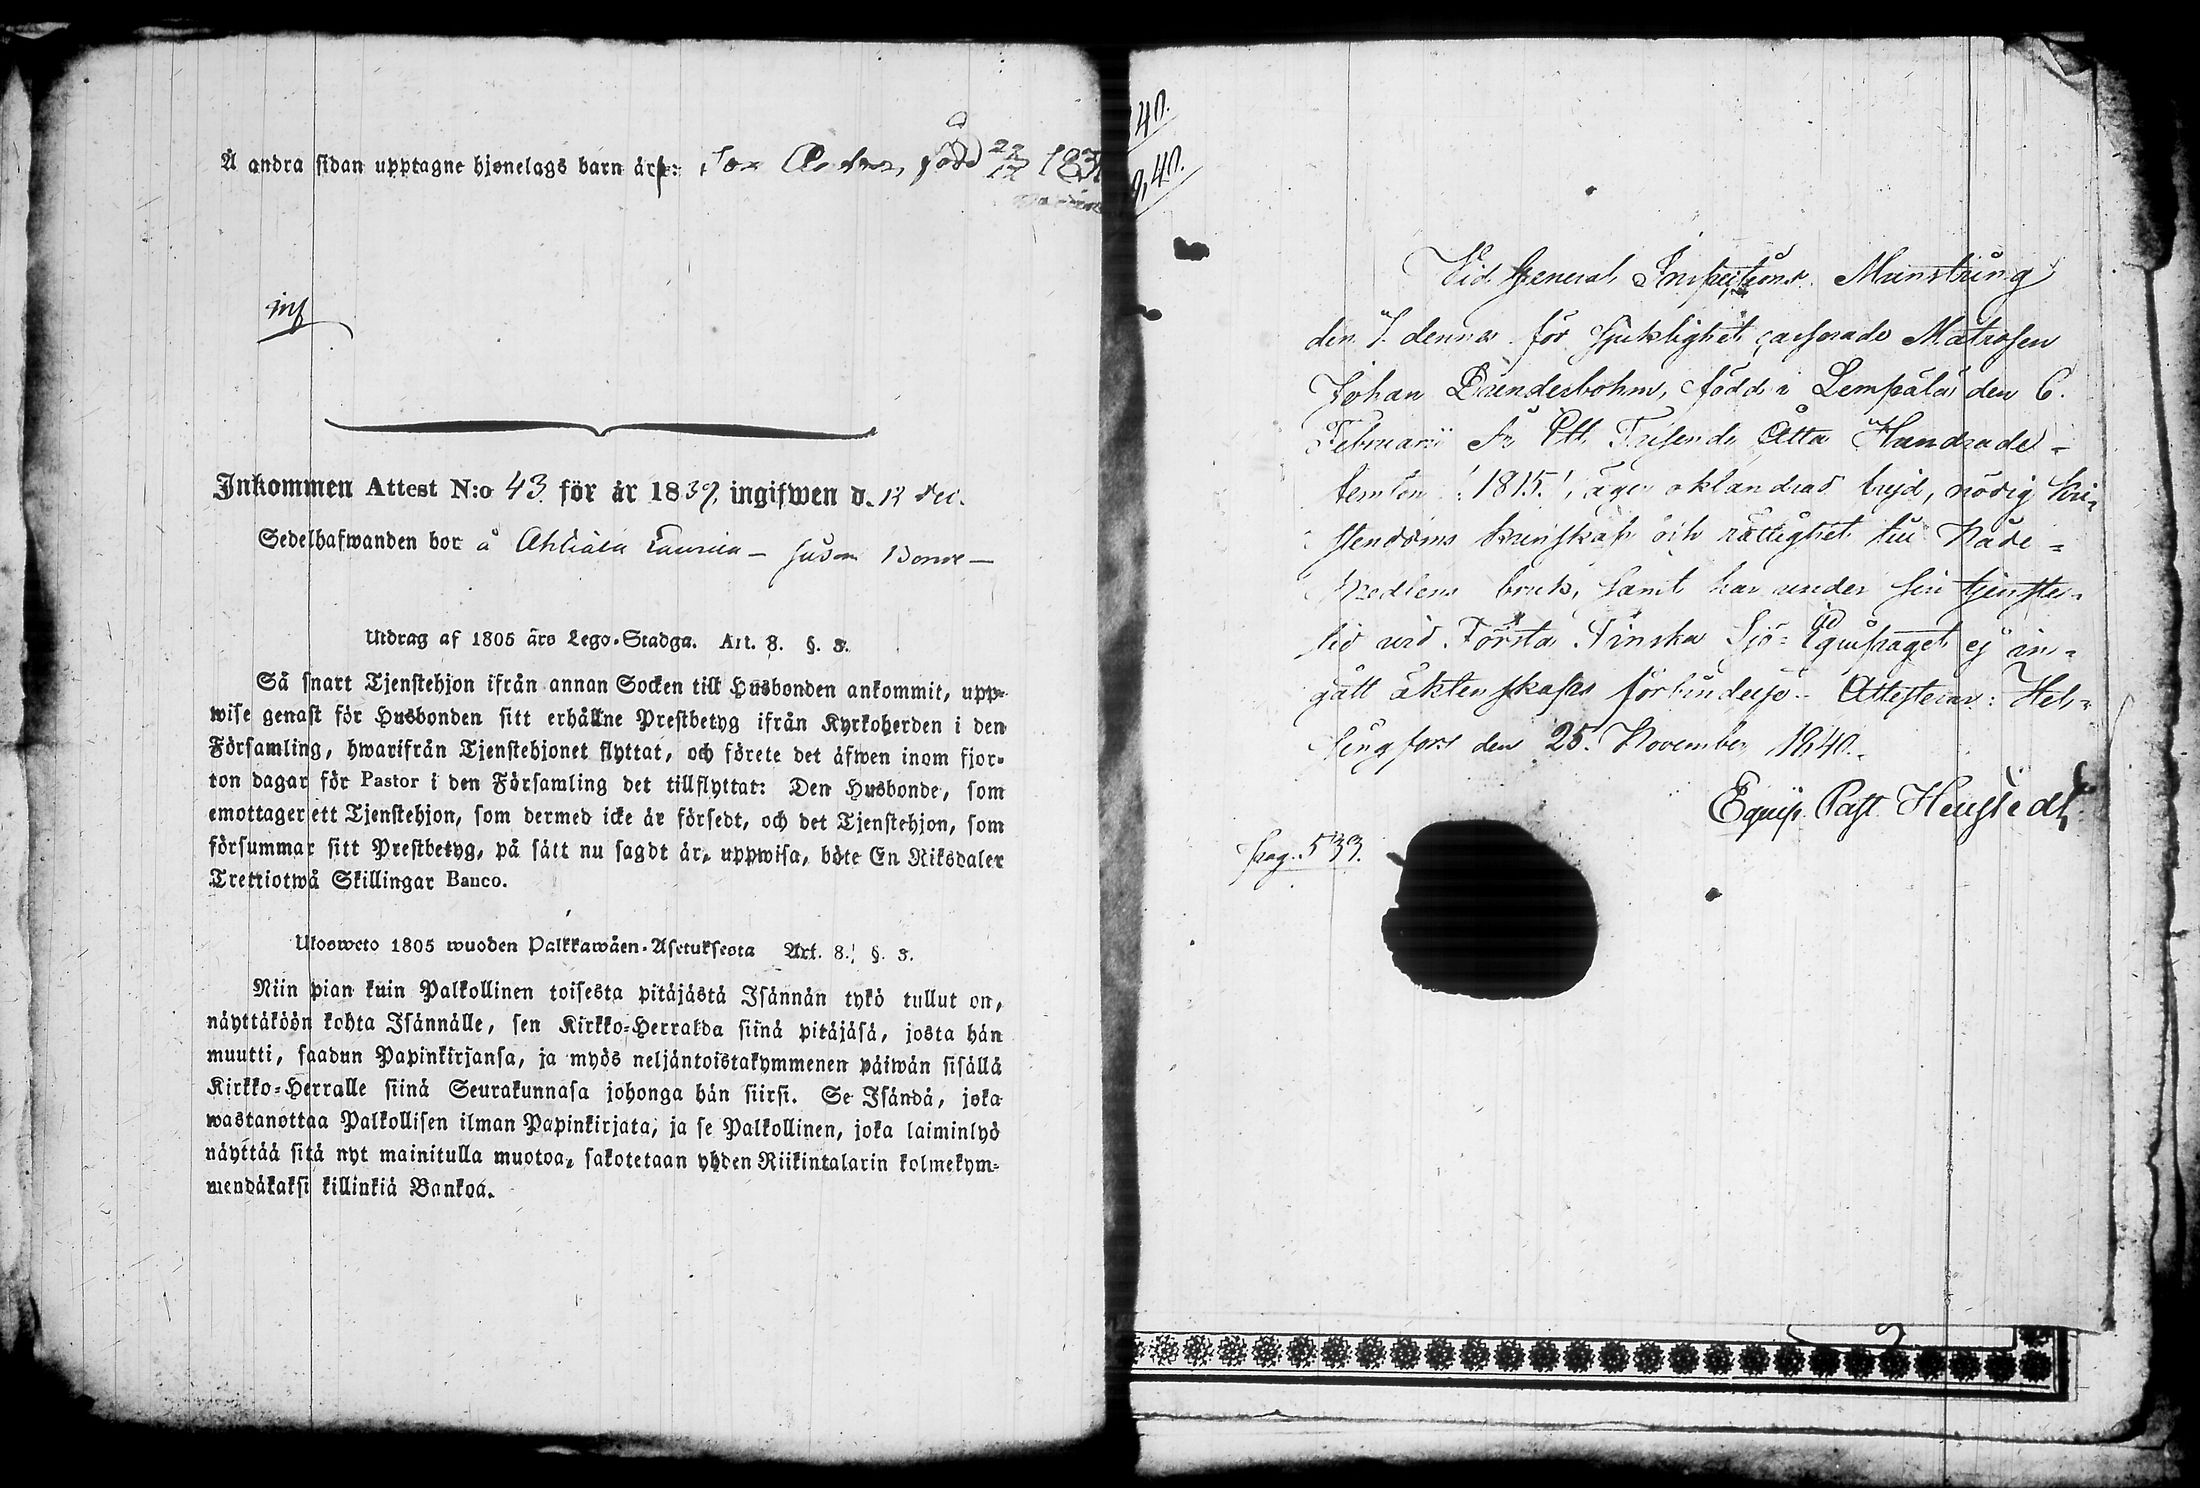 Å andra sidan upptagne hjonelags barn är: född 22/12 183
Inkommen Attest N:o 43 för år 1839, ingifwen d. 12 Dec.
Sedelhafwanden bor å
Utdrag af 1805 års Lego-Stadga. Art. 8. §. 3.
Så snart Tjenstehjon ifrån annan Socken till Husbonden ankommit, upp-
wise genast för Husbonden sitt erhållne Prestbetyg ifrån Kyrkoherden i den
Församling, hwarifrån Tjenstehjonet flyttat, och förete det äfwen inom fjor-
ton dagar för Pastor i den Församling det tillflyttat: Den Husbonde, som
emottager ett Tjenstehjon, som dermed icke är försedt, och det Tjenstehjon, som
försummar sitt Prestbetyg, på sätt nu sagdt är, uppwisa, böte En Riksdaler
Trettiotwå Skillingar Banco.
Ulosweto 1805 wuoden Palkkawäen-Asetuksesta Art. 8. §. 3.
Niin pian kuin Palkollinen toisesta pitäjästä Isännän tykö tullut on,
näyttäköön kohta Isännälle, sen Kirkko-Herralda siinä pitäjäsä, josta hän
muutti, saadun Papinkirjansa, ja myös neljäntoistakymmenen päiwän sisällä
Kirkko-Herralle siinä Seurakunnasa johonga hän siirsi. Se Isändä, joka
wastanottaa Palkollisen ilman Papinkirjata, ja se Palkollinen, joka laiminlyö
näyttää sitä nyt mainitulla muotoa, sakotetaan yhden Riikintalarin kolmekym-
mendäkaksi killinkiä Bankoa.
40.
40.
Vid General Inspections Munstring
den 7. dennes för sjuklighet casserade Matrosen
Johan født i Lempäla den 6.
Februarii År Ett Tusende Åtta Hundrade-
femton /:1815:/, äger oklandrad frejd, nödig kri-
stendoms kunskap och rättighet till Nåde-
medlens bruk, samt har under sin tjenste-
tid wid Första Finska Sjö-Equipaget ej in-
gått äktenskaps förbindelse. Attesterar: Hel-
singfors den 25. November 1840.
Equip. Past.
pag. 533.